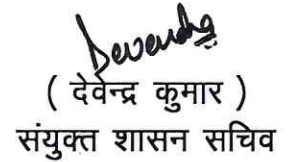 Devendra
( देवेन्द्र कुमार )
संयुक्त शासन सचिव